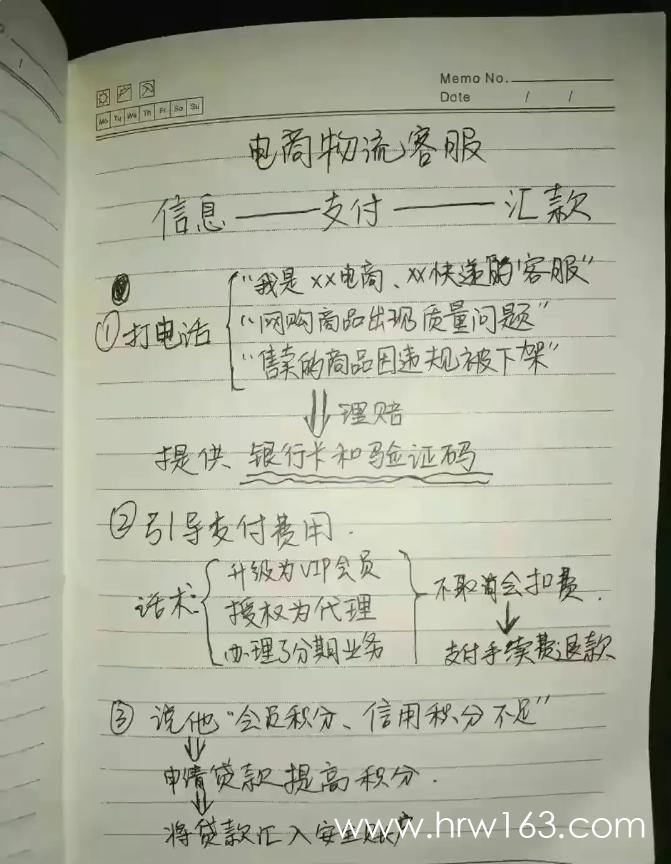 Memo No.
Date / /
Mo Tu We Th Fr Sa Su
电商物流客服
信息——支付——汇款
①打电话
"我是xx电商、xx快递的"客服"
"网购商品出现质量问题"
"售卖的商品因违规被下架"
理赔
提供 银行卡和验证码
②引导支付费用.
话术:
升级为VIP会员
授权为代理
办理了分期业务
不取消会扣费.
支付手续费退款
③说他"会员积分、信用积分不足"
申请贷款提高积分.
将贷款汇入安全账户
www.hrw163.com